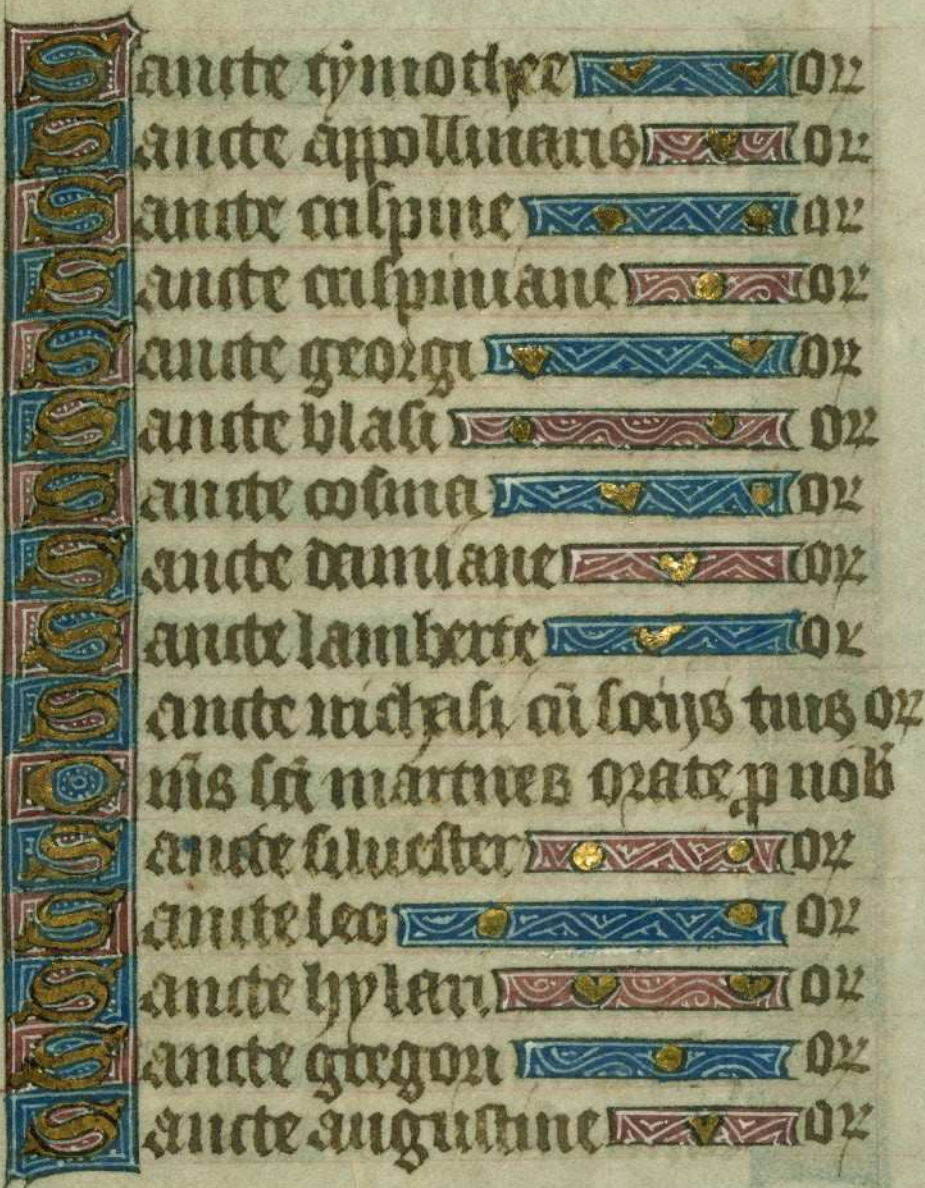 Sancte tymothee or
Sancte appollinaris or
Sancte crispine or
Sancte crispiniane or
Sancte georgi or
Sancte blasi or
Sancte cosma or
Sancte damiane or
Sancte lamberte or
Sancte nichasi cū socijs tuis or
Om̄s sc̄i martires orate ꝓ nob
Sancte siluester or
Sancte leo or
Sancte hylari or
Sancte gregori or
Sancte augustine or